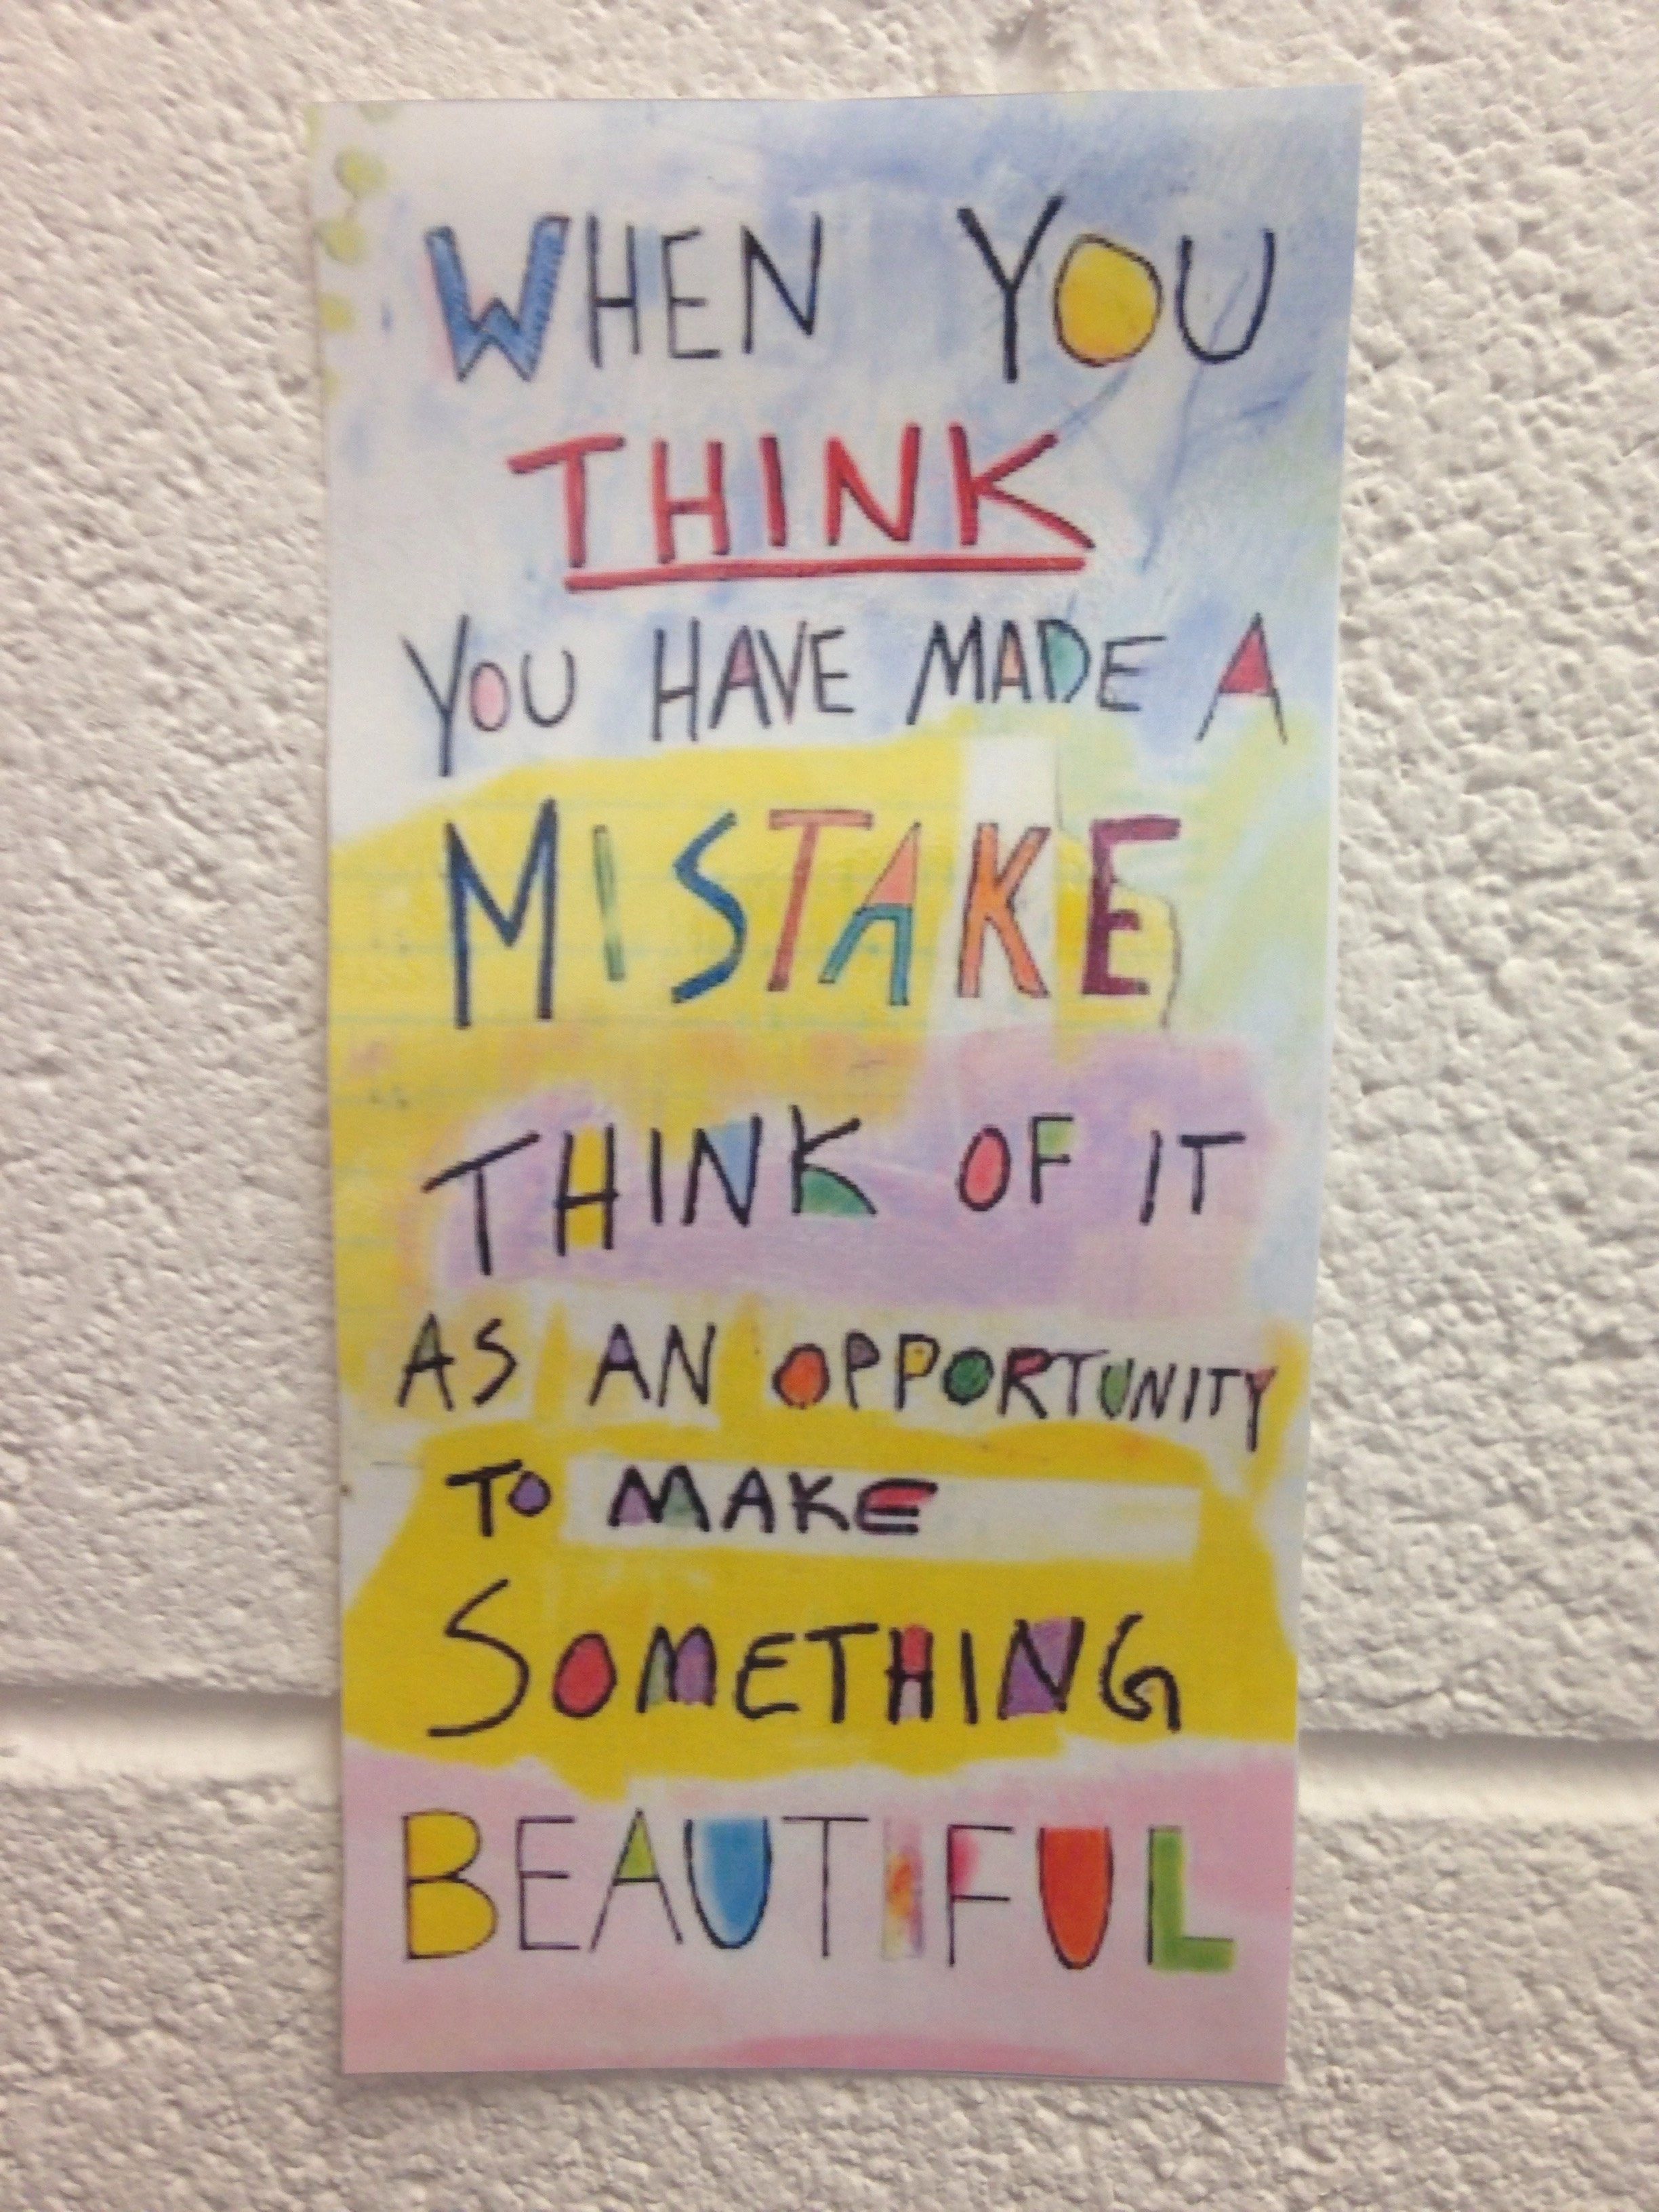 WHEN YOU
THINK
YOU HAVE MADE A
MISTAKE
THINK OF IT
AS AN OPPORTUNITY
TO MAKE
SOMETHING
BEAUTIFUL